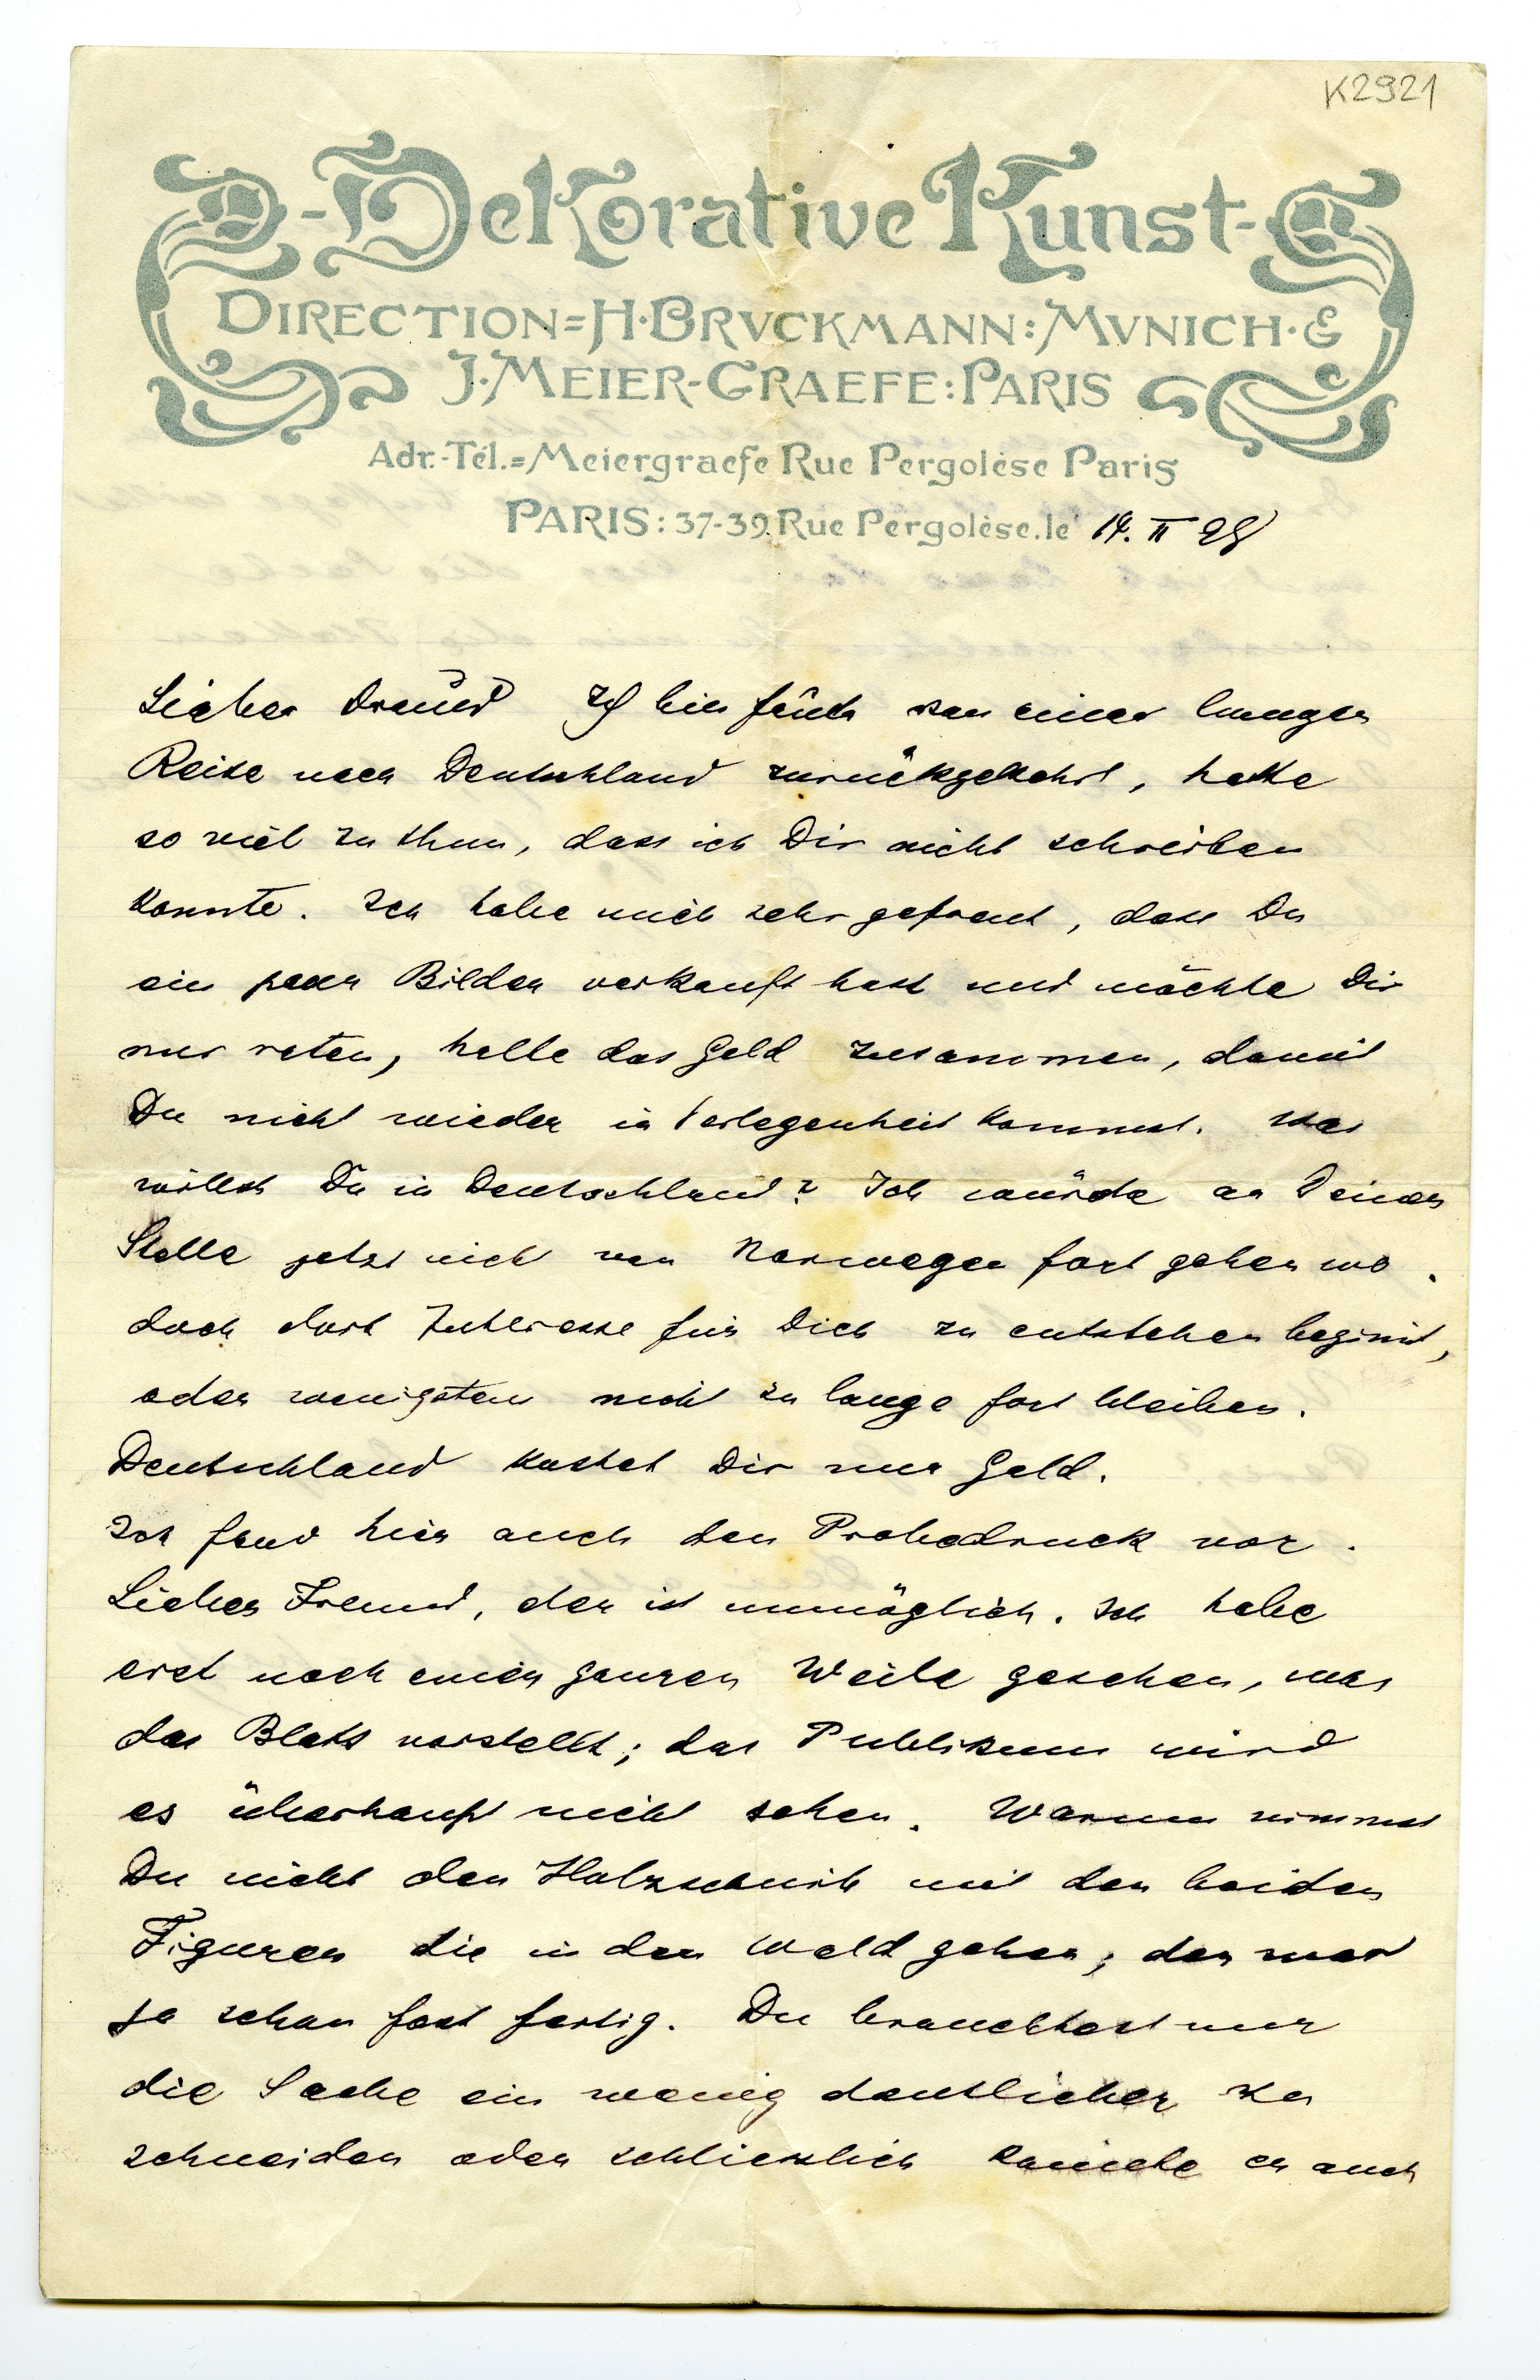 K2921
Dekorative Kunst
DIRECTION=H·BRVCKMANN:MVNICH·&
J·MEIER-GRAEFE:PARIS
Adr.-Tél.=Meiergraefe Rue Pergolèse Paris
PARIS: 37-39.Rue Pergolèse.le 14. II 98
Lieber Freund Ich bin von einer langen
Reise nach Deutschland zurückgekehrt, hatte
so viel zu thun, dass ich Dir nicht schreiben
konnte. Ich habe mich sehr gefreut, dass Du
ein paar Bilder verkauft hast und möchte Dir
nur raten, halte das Geld zusammen, damit
Du nicht wieder in Verlegenheit kommst. Was
willst Du in Deutschland? Ich würde an Deiner
Stelle jetzt nicht von Norwegen fort gehen wo
doch dort Interesse für Dich zu entstehen beginnt,
oder wenigstens nicht zu lange fort bleiben.
Deutschland kostet Dir nur Geld.
Ich fand hier auch den Probedruck vor.
Lieber Freund, der ist unmöglich. Ich habe
erst nach einer ganzen Weile gesehen, was
das Blatt vorstellt; das Publikum wird
es überhaupt nicht sehen. Warum nimmst
Du nicht den Holzschnitt mit den beiden
Figuren die in den Wald gehen, der war
ja schon fast fertig. Du brauchtest nur
die Sache ein wenig deutlicher zu
schneiden oder schliesslich könnte er auch